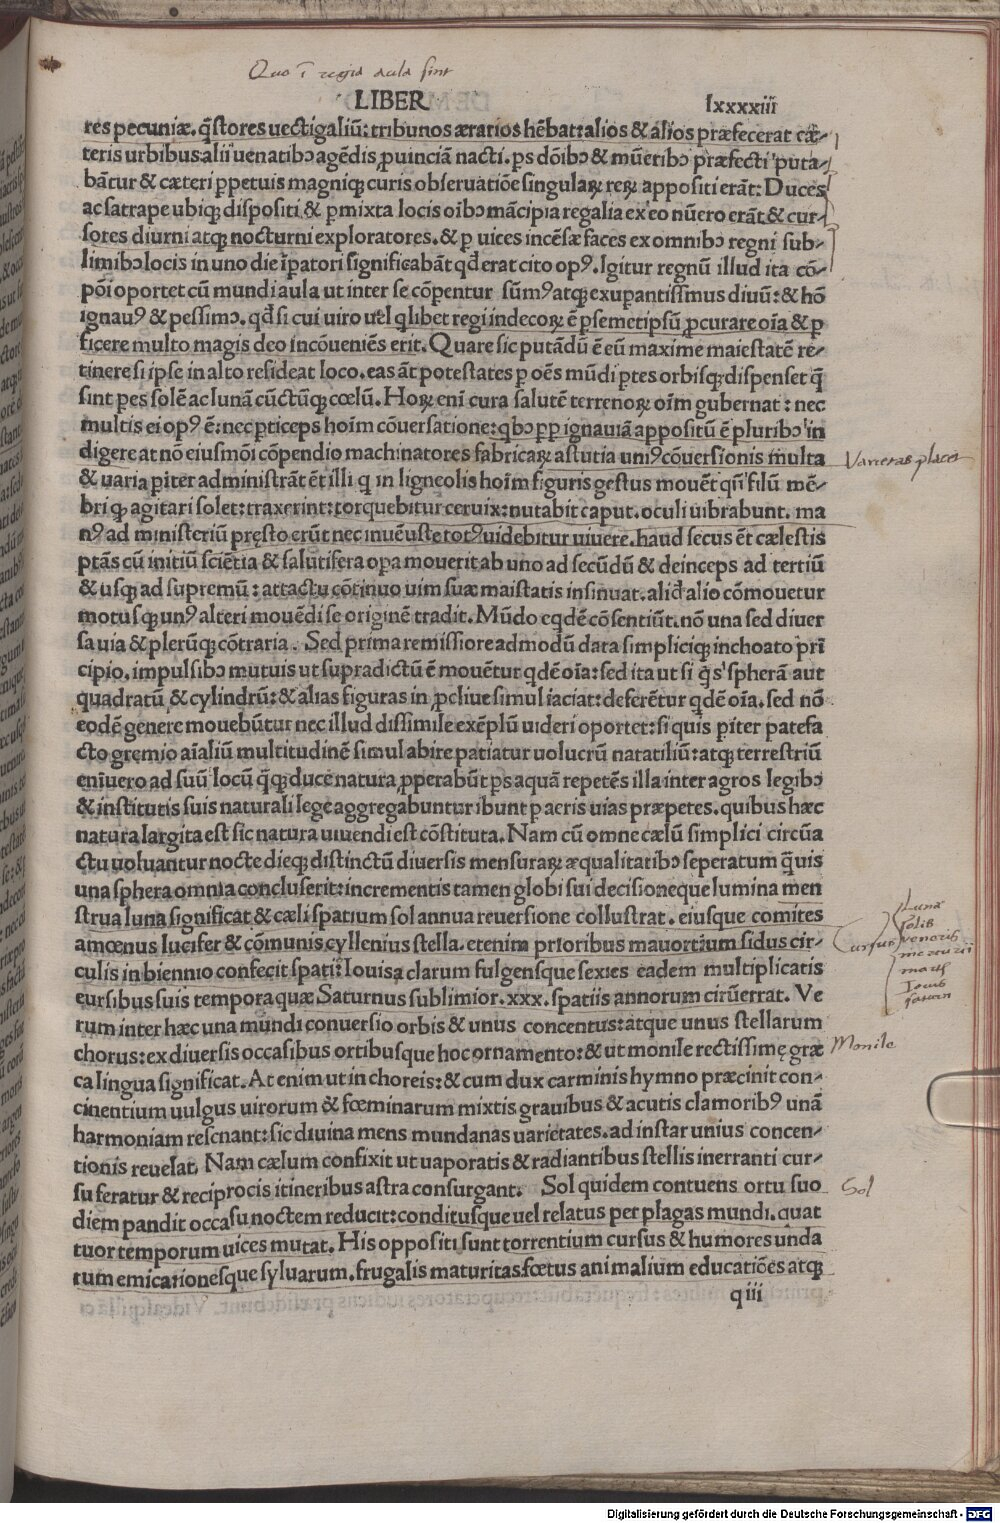 Quo ĩ regia aula sint
LIBER
lxxxxiii
res pecuniæ. q̃stores uectigaliũ: tribunos ærarios hẽbat: alios & alios præfecerat cæ-
teris urbibus alii uenatibꝰ agẽdis ꝓuinciã nacti. ps dõibꝰ & mũeribꝰ præfecti puta-
bãtur & cæteri ꝑpetuis magnisqꝫ curis obseruatiõe singulaꝝ reꝝ appositi erãt: Duces
ac satrape ubiqꝫ dispositi & ꝑmixta locis oĩbꝰ mãcipia regalia ex eo nũero erãt & cur-
sores diurni atqꝫ nocturni exploratores. & ꝑ uices incẽsæ faces ex omnibꝰ regni sub-
limibꝰ locis in uno die ĩpatori significabãt qd̃ erat cito opꝰ. Igitur regnũ illud ita cõ-
põi oportet cũ mundi aula ut inter se cõpentur sũmꝰ atqꝫ exupantissimus diuũ: & hõ
ignauꝰ & pessimꝰ. qd̃ si cui uiro uel qlibet regi indecoꝝ ẽ ꝑsemetipsũ ꝓcurare oĩa & ꝑ
ficere multo magis deo incõueniẽs erit. Quare sic putãdũ ẽ eũ maxime maiestatẽ re-
tinere si ipse in alto resideat loco. eas ãt potestates ꝑ oẽs mũdi ꝑtes orbisqꝫ dispenset q̃
sint pes solẽ ac lunã cũctũqꝫ cœlũ. Hoꝝ enĩ cura salutẽ terrenoꝝ oĩm gubernat: nec
multis ei opꝰ ẽ: nec ꝑticeps hoĩm cõuersatione: qbꝰ pp ignauiã appositũ ẽ pluribꝰ in
digere at nõ eiusmõi cõpendio machinatores fabricaꝝ astutia unĩꝰ cõuersionis multa
& uaria ꝑiter administrãt ẽt illi q in ligneolis hoĩm figuris gestus mouẽt qñ filũ mẽ-
bri qꝫ agitari solet: traxerint: torquebitur ceruix: nutabit caput. oculi uibrabunt. ma
nꝰ ad ministeriũ pręsto erũt nec inuẽuste totꝰ uidebitur uiuere. haud secus ẽt cælestis
ptãs cũ initiũ sciẽtia & salutifera opa mouerit ab uno ad secũdũ & deinceps ad tertiũ
& usqꝫ ad supremũ: attactu cõtinuo uim suæ maistatis insinuat. alid̃ alio cõmouetur
motusqꝫ unꝰ alteri mouẽdi se originẽ tradit. Mũdo eqdẽ cõsentiũt. nõ una sed diuer
sa uia & plerũqꝫ cõtraria. Sed prima remissiore admodũ data simplicique inchoato prĩ
cipio. impulsibꝰ mutuis ut supradictũ ẽ mouẽtur qdẽ oĩa: sed ita ut si q̃s spherã aut
quadratũ & cylindrũ: & alias figuras in ꝓcliue simul iaciat: deferẽtur qdẽ oĩa. sed nõ
eodẽ genere mouebũtur nec illud dissimile exẽplũ uideri oportet: si quis ꝑiter patefa
cto gremio aĩaliũ multitudinẽ simul abire patiatur uolucrũ natatiliũ: atqꝫ terrestriũ
enĩuero ad suũ locũ q̃qꝫ duce natura ꝓperabũt ps aquã repetẽs illa inter agros legibꝰ
& institutis suis naturali lege aggregabuntur ibunt ꝑ aeris uias præpetes. quibus hæc
natura largita est sic natura uiuendi est cõstituta. Nam cũ omne cælũ simplici circũa
ctu uoluantur nocte dieqꝫ distinctũ diuersis mensuraꝝ æqualitatibꝰ seperatum q̃uis
una sphera omnia concluserit: incrementis tamen globi sui decisioneque lumina men
strua luna significat & cæli spatium sol annua reuersione collustrat. eiusque comites
amœnus lucifer & cõmunis cyllenius stella. etenim prioribus mauortium sidus cir-
culis in biennio confecit spatii: Iouis a clarum fulgensque sexies eadem multiplicatis
cursibus suis tempora quæ Saturnus sublimior. xxx. spatiis annorum cirũerrat. Ve
rum inter hæc una mundi conuersio orbis & unus concentus: atque unus stellarum
chorus: ex diuersis occasibus ortibusque hoc ornamento: & ut monile rectissimę græ
ca lingua significat. At enim ut in choreis: & cum dux carminis hymno præcinit con-
cinentium uulgus uirorum & fœminarum mixtis grauibus & acutis clamoribꝰ unã
harmoniam resonant: sic diuina mens mundanas uarietates. ad instar unius concen-
tionis reuelat. Nam cælum confixit ut uaporatis & radiantibus stellis inerranti cur-
su feratur & reciprocis itineribus astra consurgant. Sol quidem contuens ortu suo
diem pandit occasu noctem reducit: conditusque uel relatus per plagas mundi. quat
tuor temporum uices mutat. His oppositi sunt torrentium cursus & humores unda
rum emicationesque syluarum. frugalis maturitas. fœtus animalium educatiões atqꝫ
q iii
Luna
Solis
Cursus veneris
mercurii
mart
Iouis
saturn
Monile
Sol
Digitalisierung gefördert durch die Deutsche Forschungsgemeinschaft - DFG